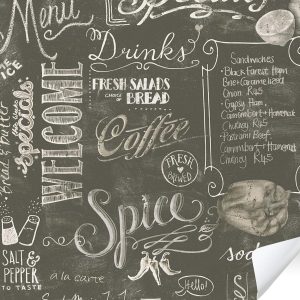 Menu
Special
Drinks
FRESH SALADS
CHOICE OF
BREAD
WELCOME
ICE
Bread & butter
specials
Coffee
FRESH
BREWED
Sandwiches
Black Forest Ham
Brie + Caramelized
Onion R45
Gypsy Ham,
Camembert + Homemade
Chutney R45
Pastrami Beef
Camembert + Homemade
Chutney R45
Spice
SALT &
PEPPER
TO TASTE
à la carte
Hello!
soda